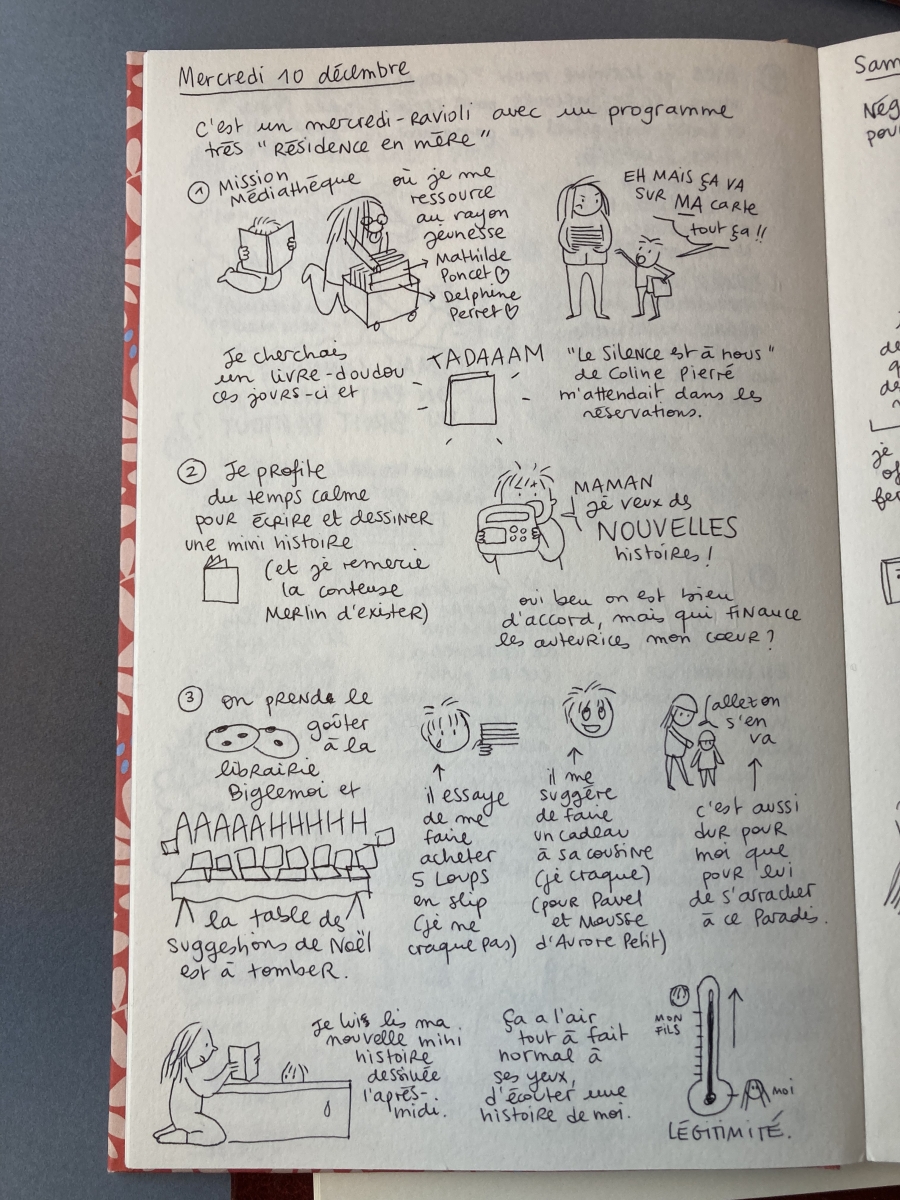 Mercredi 10 décembre
C'est un mercredi-Ravioli avec un programme
très "Résidence en mère"
① Mission
Médiathèque
où je me
ressource
au rayon
jeunesse
Mathilde
Poncet ♡
Delphine
Perret ♡
EH MAIS ÇA VA
SUR MA carte
tout ça !!
Je cherchais
un livre-doudou
ces jours-ci et
TADAAAM
"Le Silence est à nous"
de Coline Pierré
m'attendait dans les
réservations.
② Je profite
du temps calme
pour écrire et dessiner
une mini histoire
(et je remercie
la conteuse
Merlin d'exister)
MAMAN
je veux des
NOUVELLES
histoires !
oui ben on est bien
d'accord, mais qui finance
les auteurices mon cœur ?
③ on prend le
goûter
à la
librairie
Biglemoi et
AAAAAHHHHH
la table des
suggestions de Noël
est à tomber.
il essaye
de me
faire
acheter
5 Loups
en slip
(je ne
craque pas)
il me
suggère
de faire
un cadeau
à sa cousine
(je craque)
(pour Pavel
et Mousse
d'Aurore Petit)
allez on
s'en
va
c'est aussi
dur pour
moi que
pour lui
de s'arracher
à ce Paradis.
Je lui lis ma
nouvelle mini
histoire
dessinée
l'après-
midi.
Ça a l'air
tout à fait
normal à
ses yeux,
d'écouter une
histoire de moi.
MON
FILS
moi
LÉGITIMITÉ.
Sam
Nég
pou